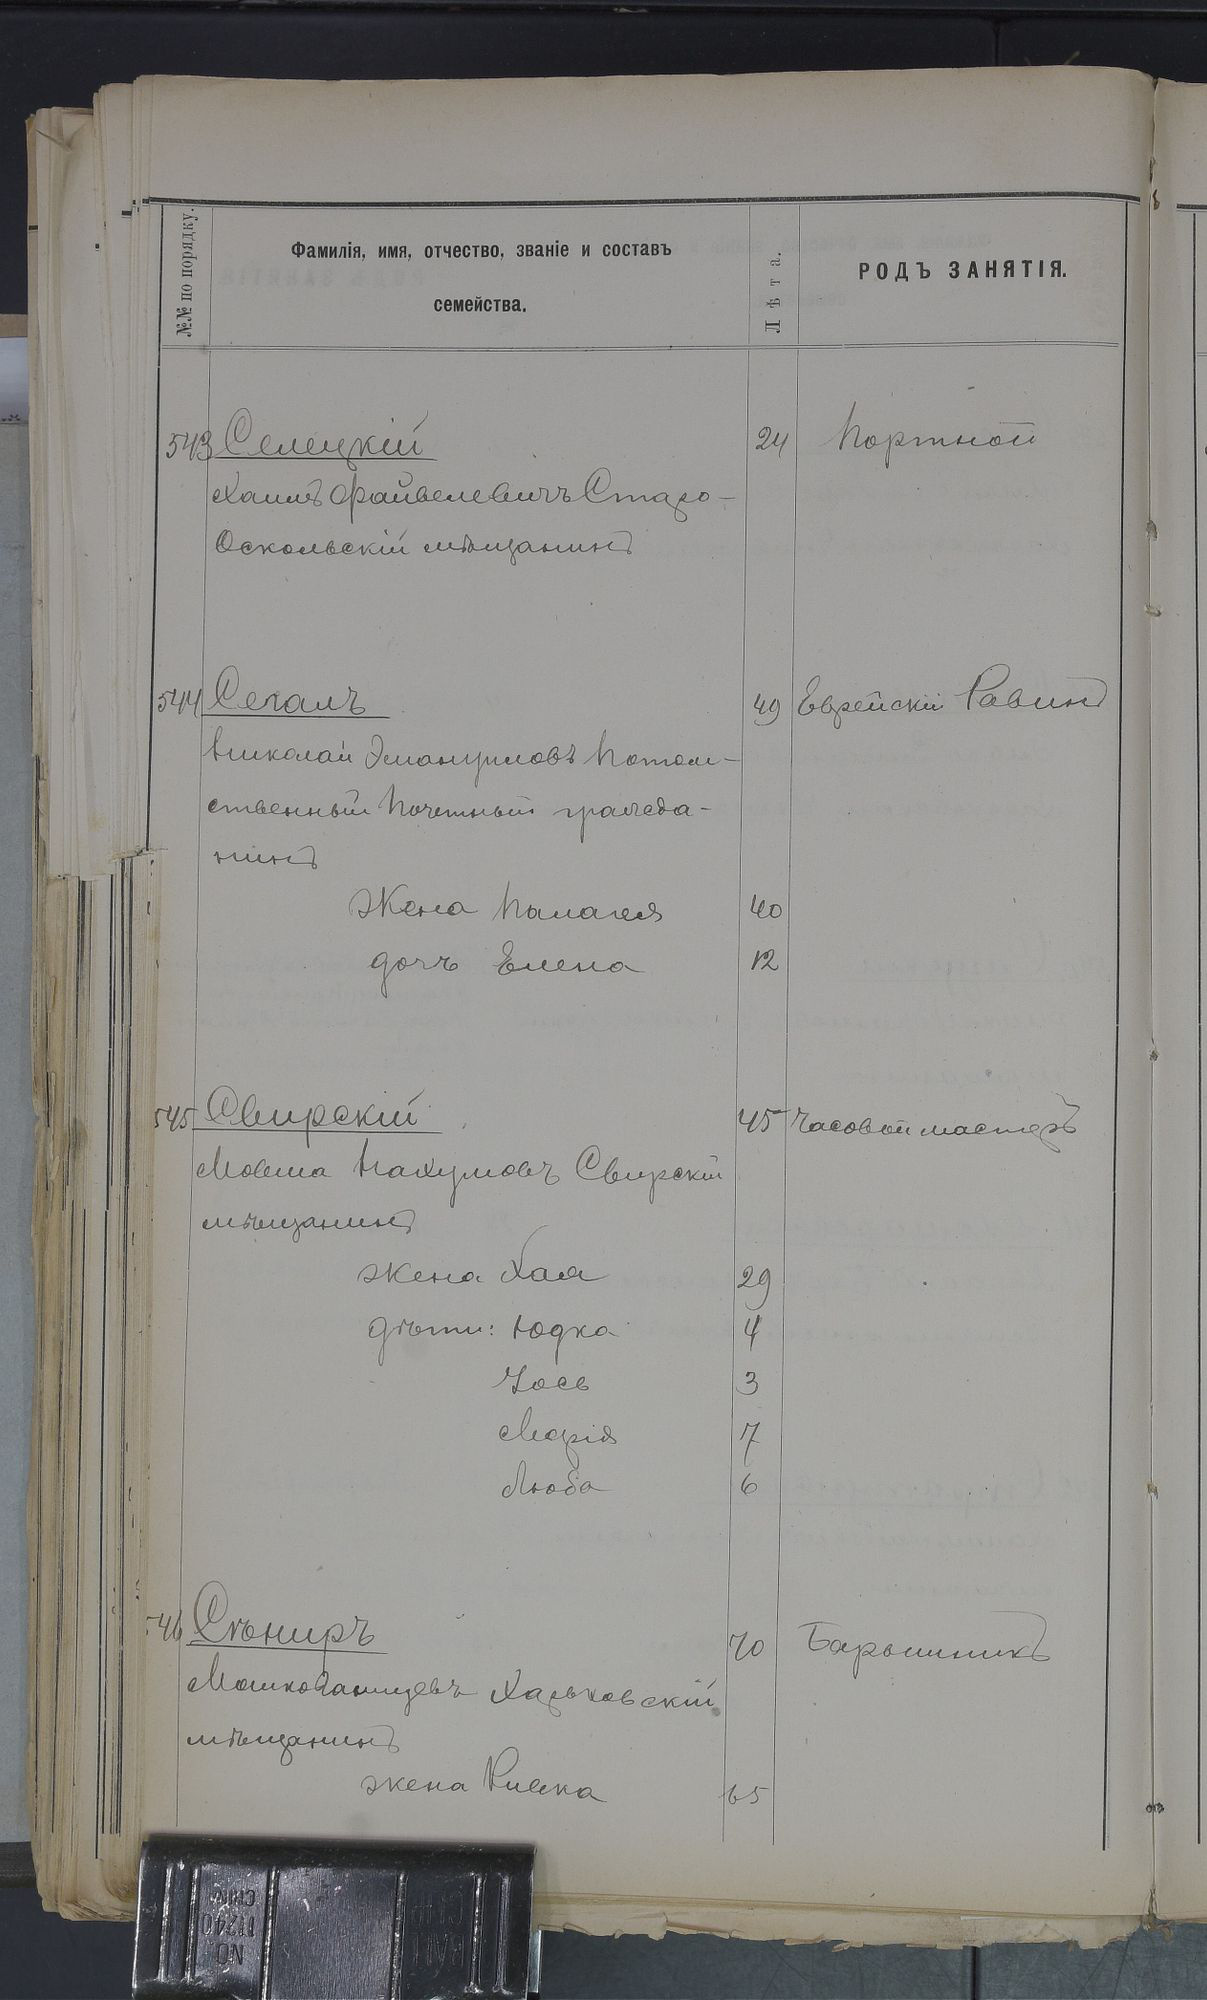 №№ по порядку.
Фамилія, имя, отчество, званіе и составъ
семейства.
Лѣта.
РОДЪ ЗАНЯТІЯ.
543 Селецкій 24 Портной
Хаимъ Файвелевичъ Старо-
Оскольскій мѣщанинъ
544 Сегалъ 49 Еврейскій Равинъ
Николай Эмануиловъ Потом-
ственный Почетный гражда-
нинъ
Жена Палагея 40
дочь Елена 12
545 Свирскій 45 Часовой мастеръ
Мовша Нахумовъ Свирскій
мѣщанинъ
жена Хая 29
дѣти: Юдка 4
Іось 3
Марія 7
Люба 6
546 Сѣниръ 70 Барышникъ
Мошко Харьковскій
мѣщанинъ
жена Ривка 65
NO
11240